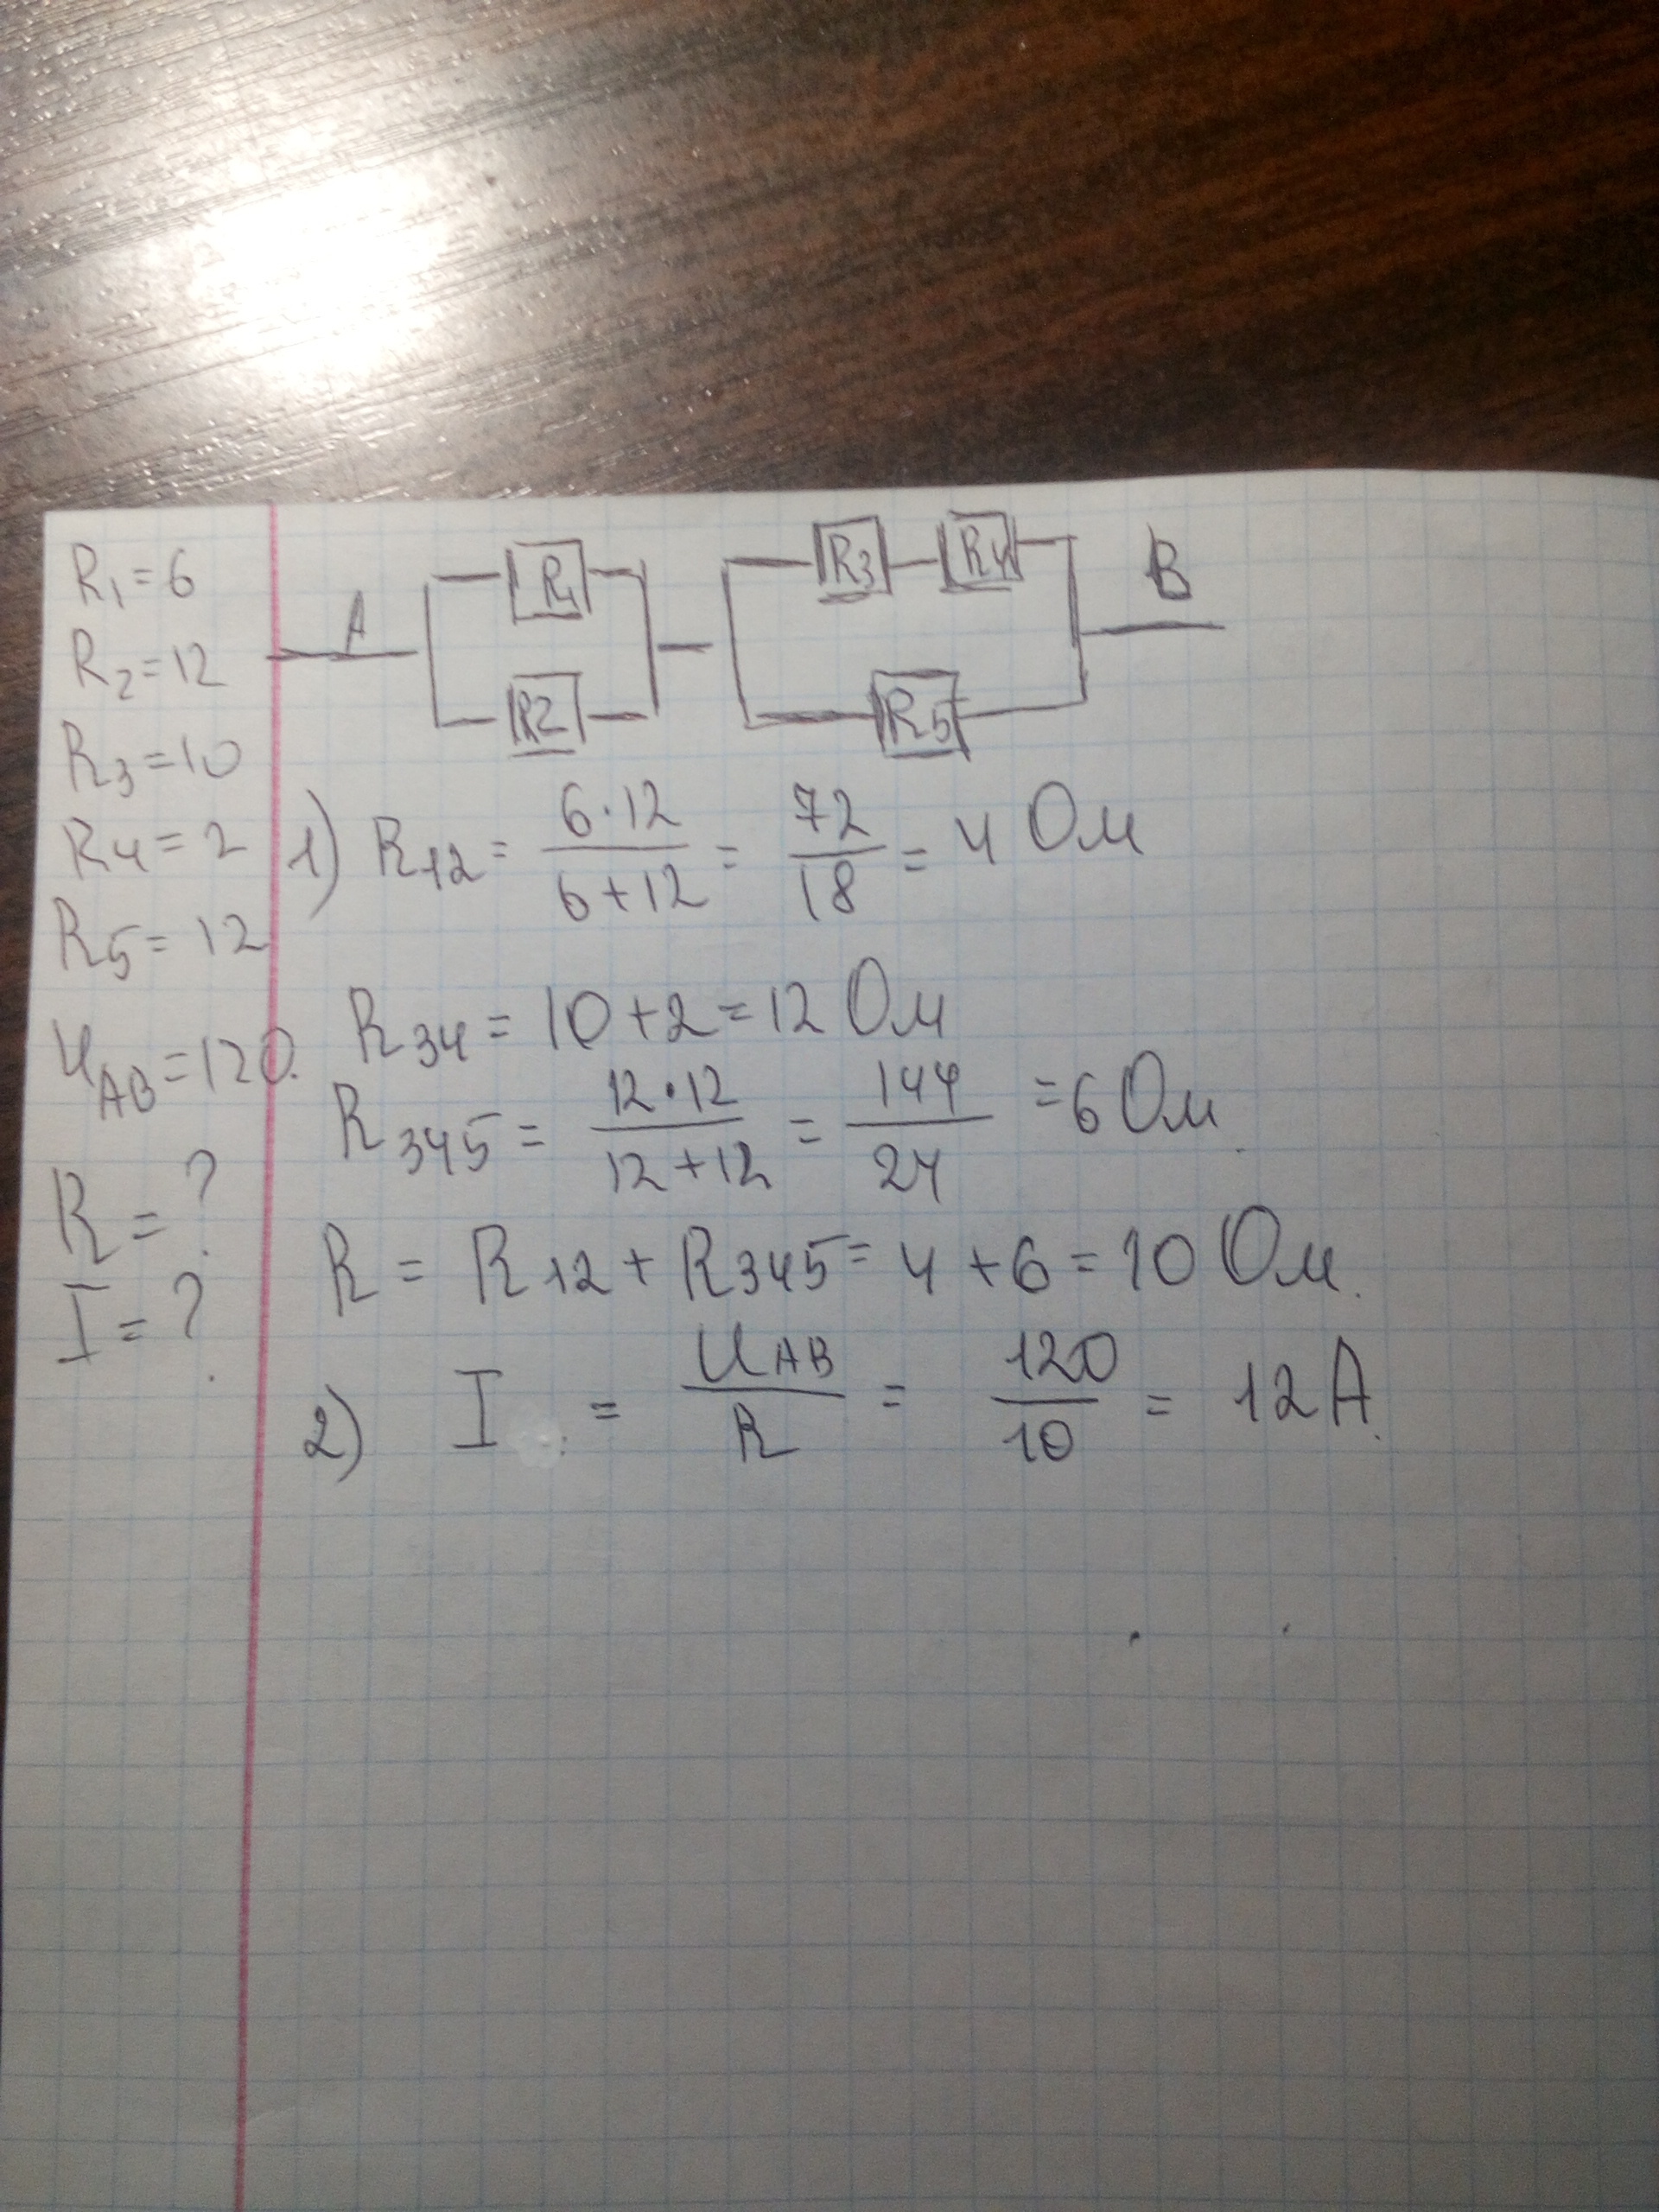 R₁=6
R₂=12
R₃=10
R₄=2
R₅=12
U_AB=120.
R=?
I=?
A R1 R3 R4 B
R2 R5
1) R₁₂ = 6·12 / 6+12 = 72 / 18 = 4 Ом
R₃₄ = 10+2=12 Ом
R₃₄₅ = 12·12 / 12+12 = 144 / 24 =6 Ом.
R = R₁₂ + R₃₄₅ = 4+6=10 Ом.
2) I = U_AB / R = 120 / 10 = 12 А.